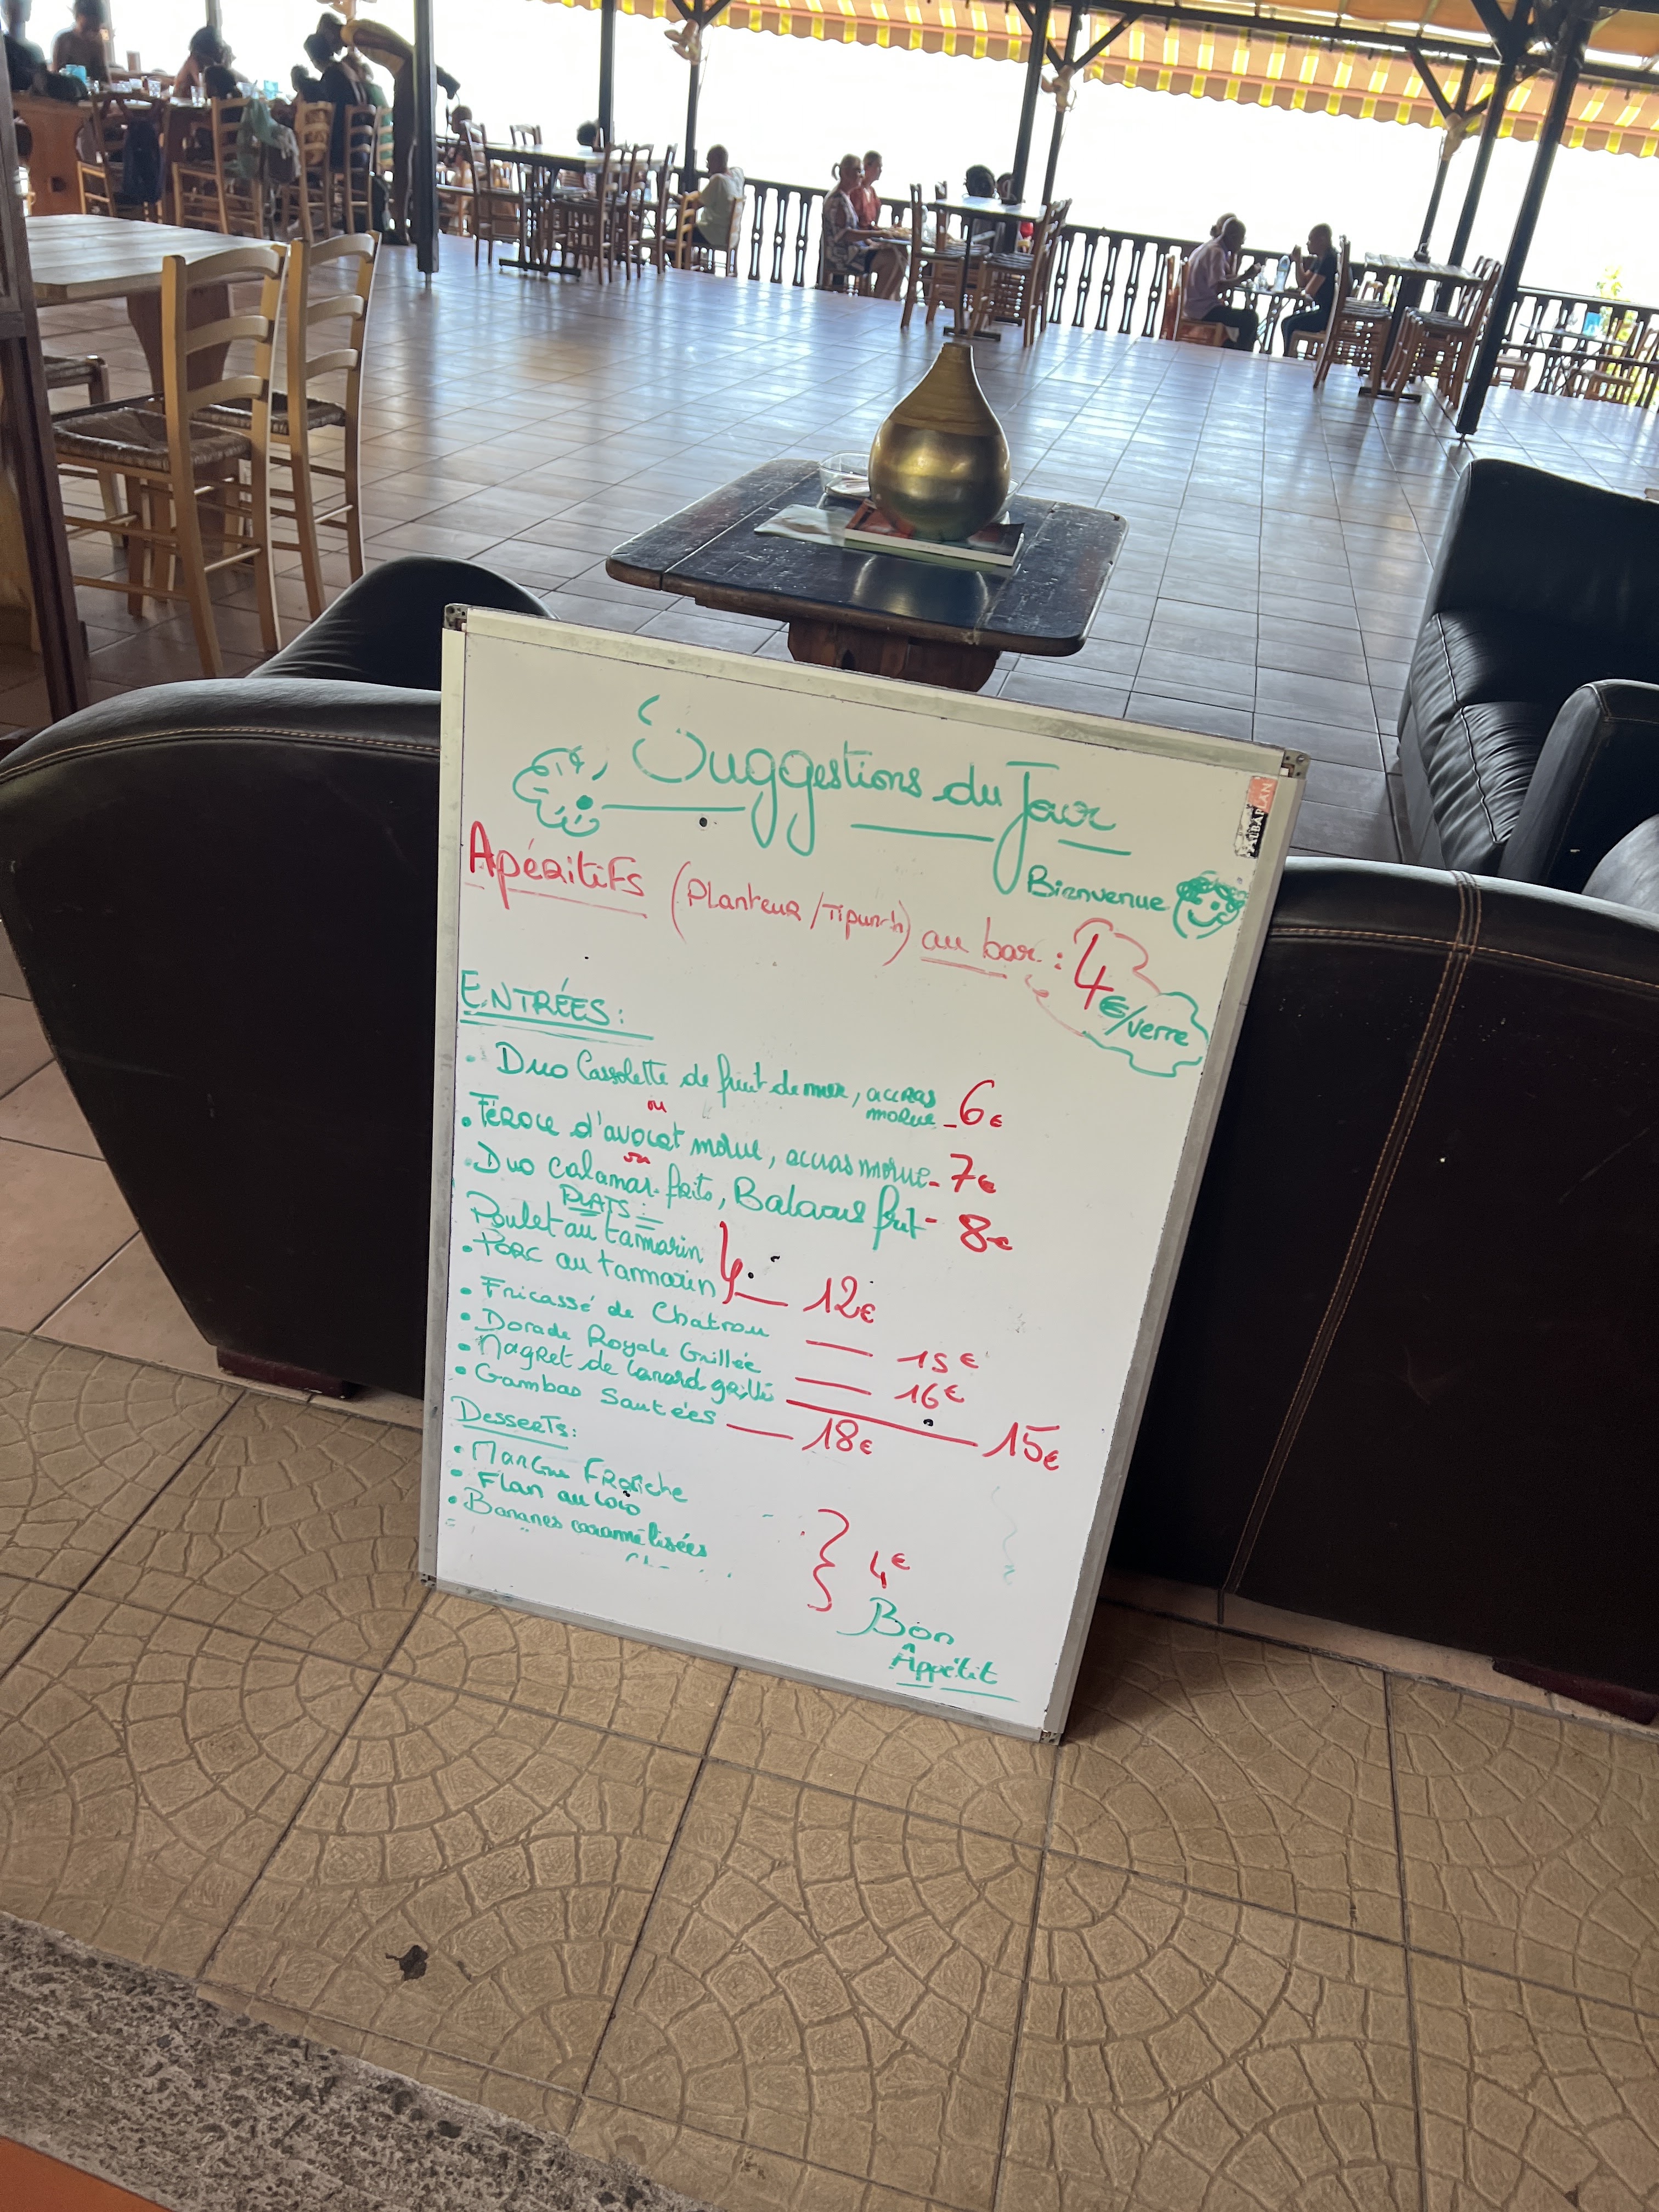 Suggestions du Jour
Bienvenue
Apéritifs (Planteur/Tipunch) au bar : 4€/verre
ENTRÉES:
• Duo Cassolette de fruit de mer, accras morue - 6€
ou
• Féroce d'avocat morue, accras morue - 7€
ou
• Duo calamar frits, Balaous frit - 8€
PLATS:
Poulet au tamarin
• Porc au tamarin — 12€
• Fricassé de Chatrou — 15€
• Dorade Royale Grillée — 16€
• Magret de Canard grillé — 15€
• Gambas Sautées — 18€
Desserts:
• Mangue Fraîche
• Flan au coco
• Bananes caramélisées
4€
Bon
Appétit